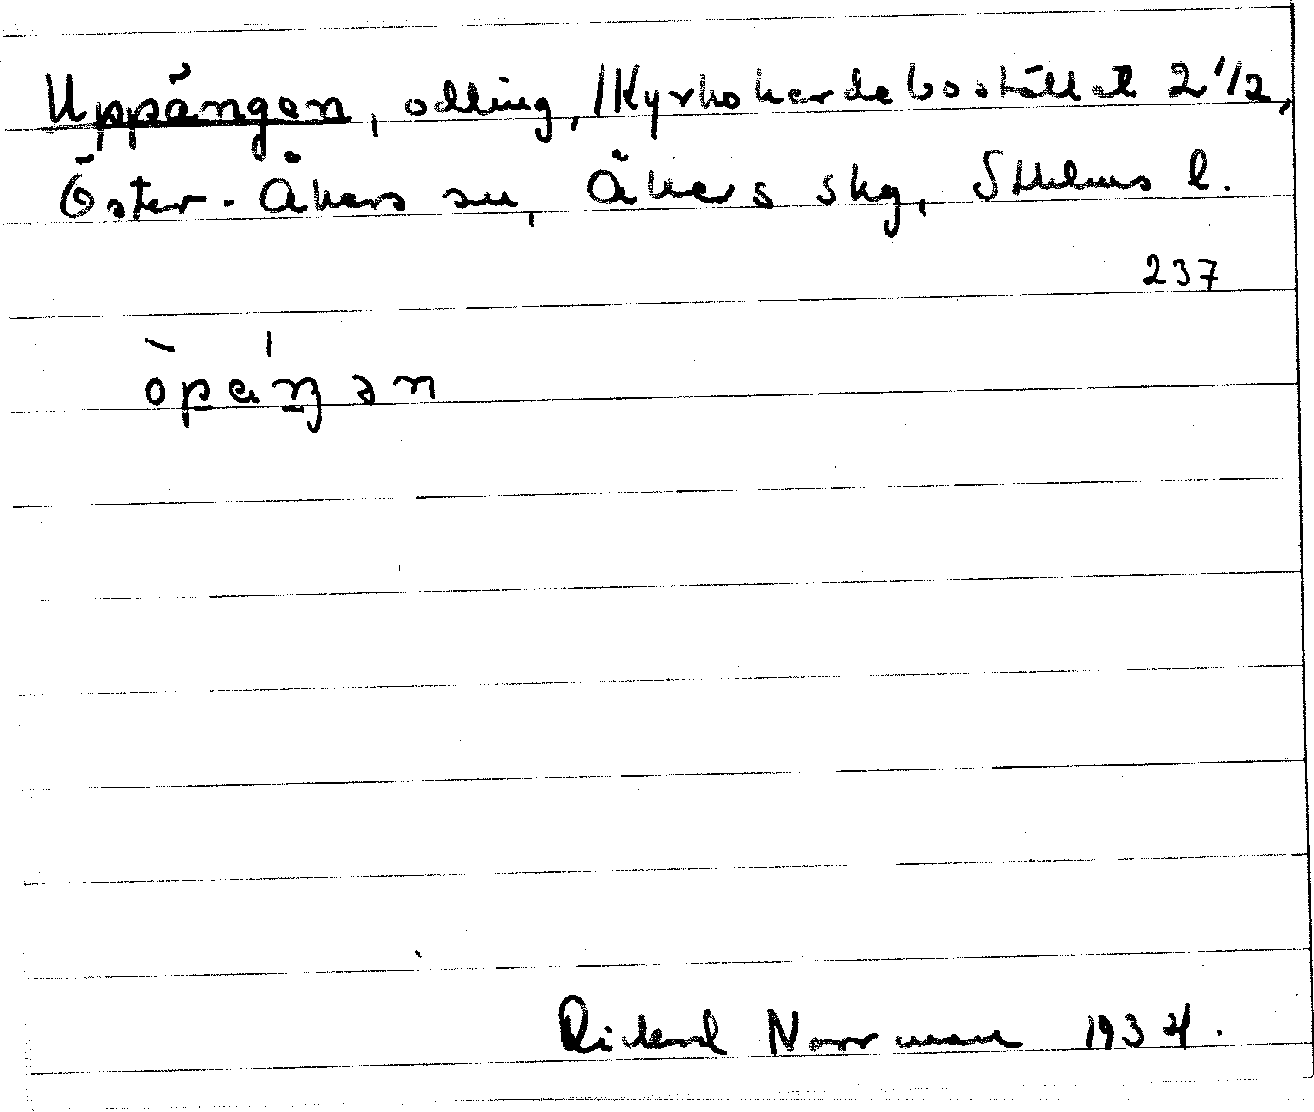 Uppängen, odling, /Kyrkoherdebostället 2 1/2,
Öster-Åkers sn, Åkers skg, Sthlms l.
237
òpáŋən
Rickard Norrman 1934.